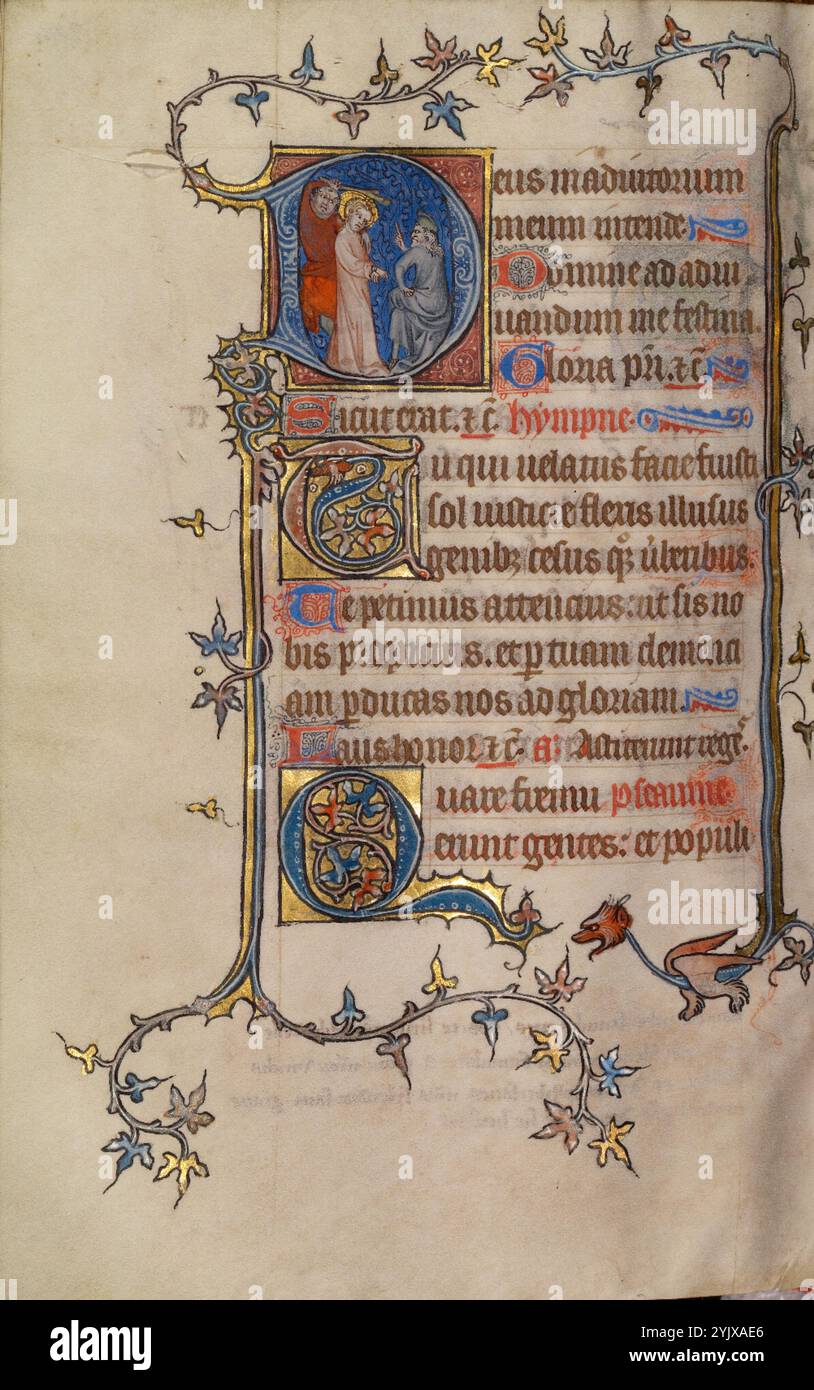 Deus in adiutorium
meum intende
Domine ad adiu
uandum me festina.
Gloria pri. &c.
Sicut erat. &c. hympne.
Tu qui uelatus facie fuisti
sol iusticie flexis illusus
genibz cesus qz uerberibus.
Te petimus attencius: ut sis no
bis propicius. et per tuam clemenci
am perducas nos ad gloriam.
Laus honor &c. a. Astiterunt reges
Quare fremu pseaume
erunt gentes: et populi
alamy
Image ID: 2YJXAE6
www.alamy.com